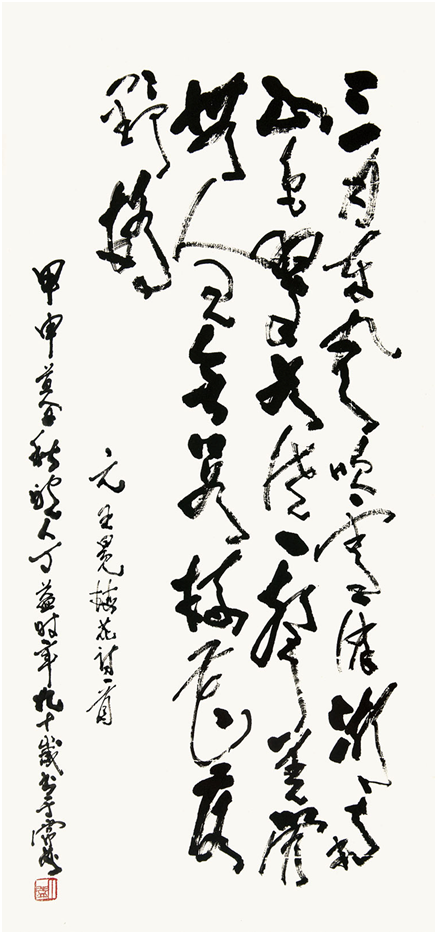 三月東風吹雪消湖南
山色翠如澆一聲羌管
無人見無數梅花落
野橋
元王冕梅花詩一首
甲申秋人丁時年九十歲書于